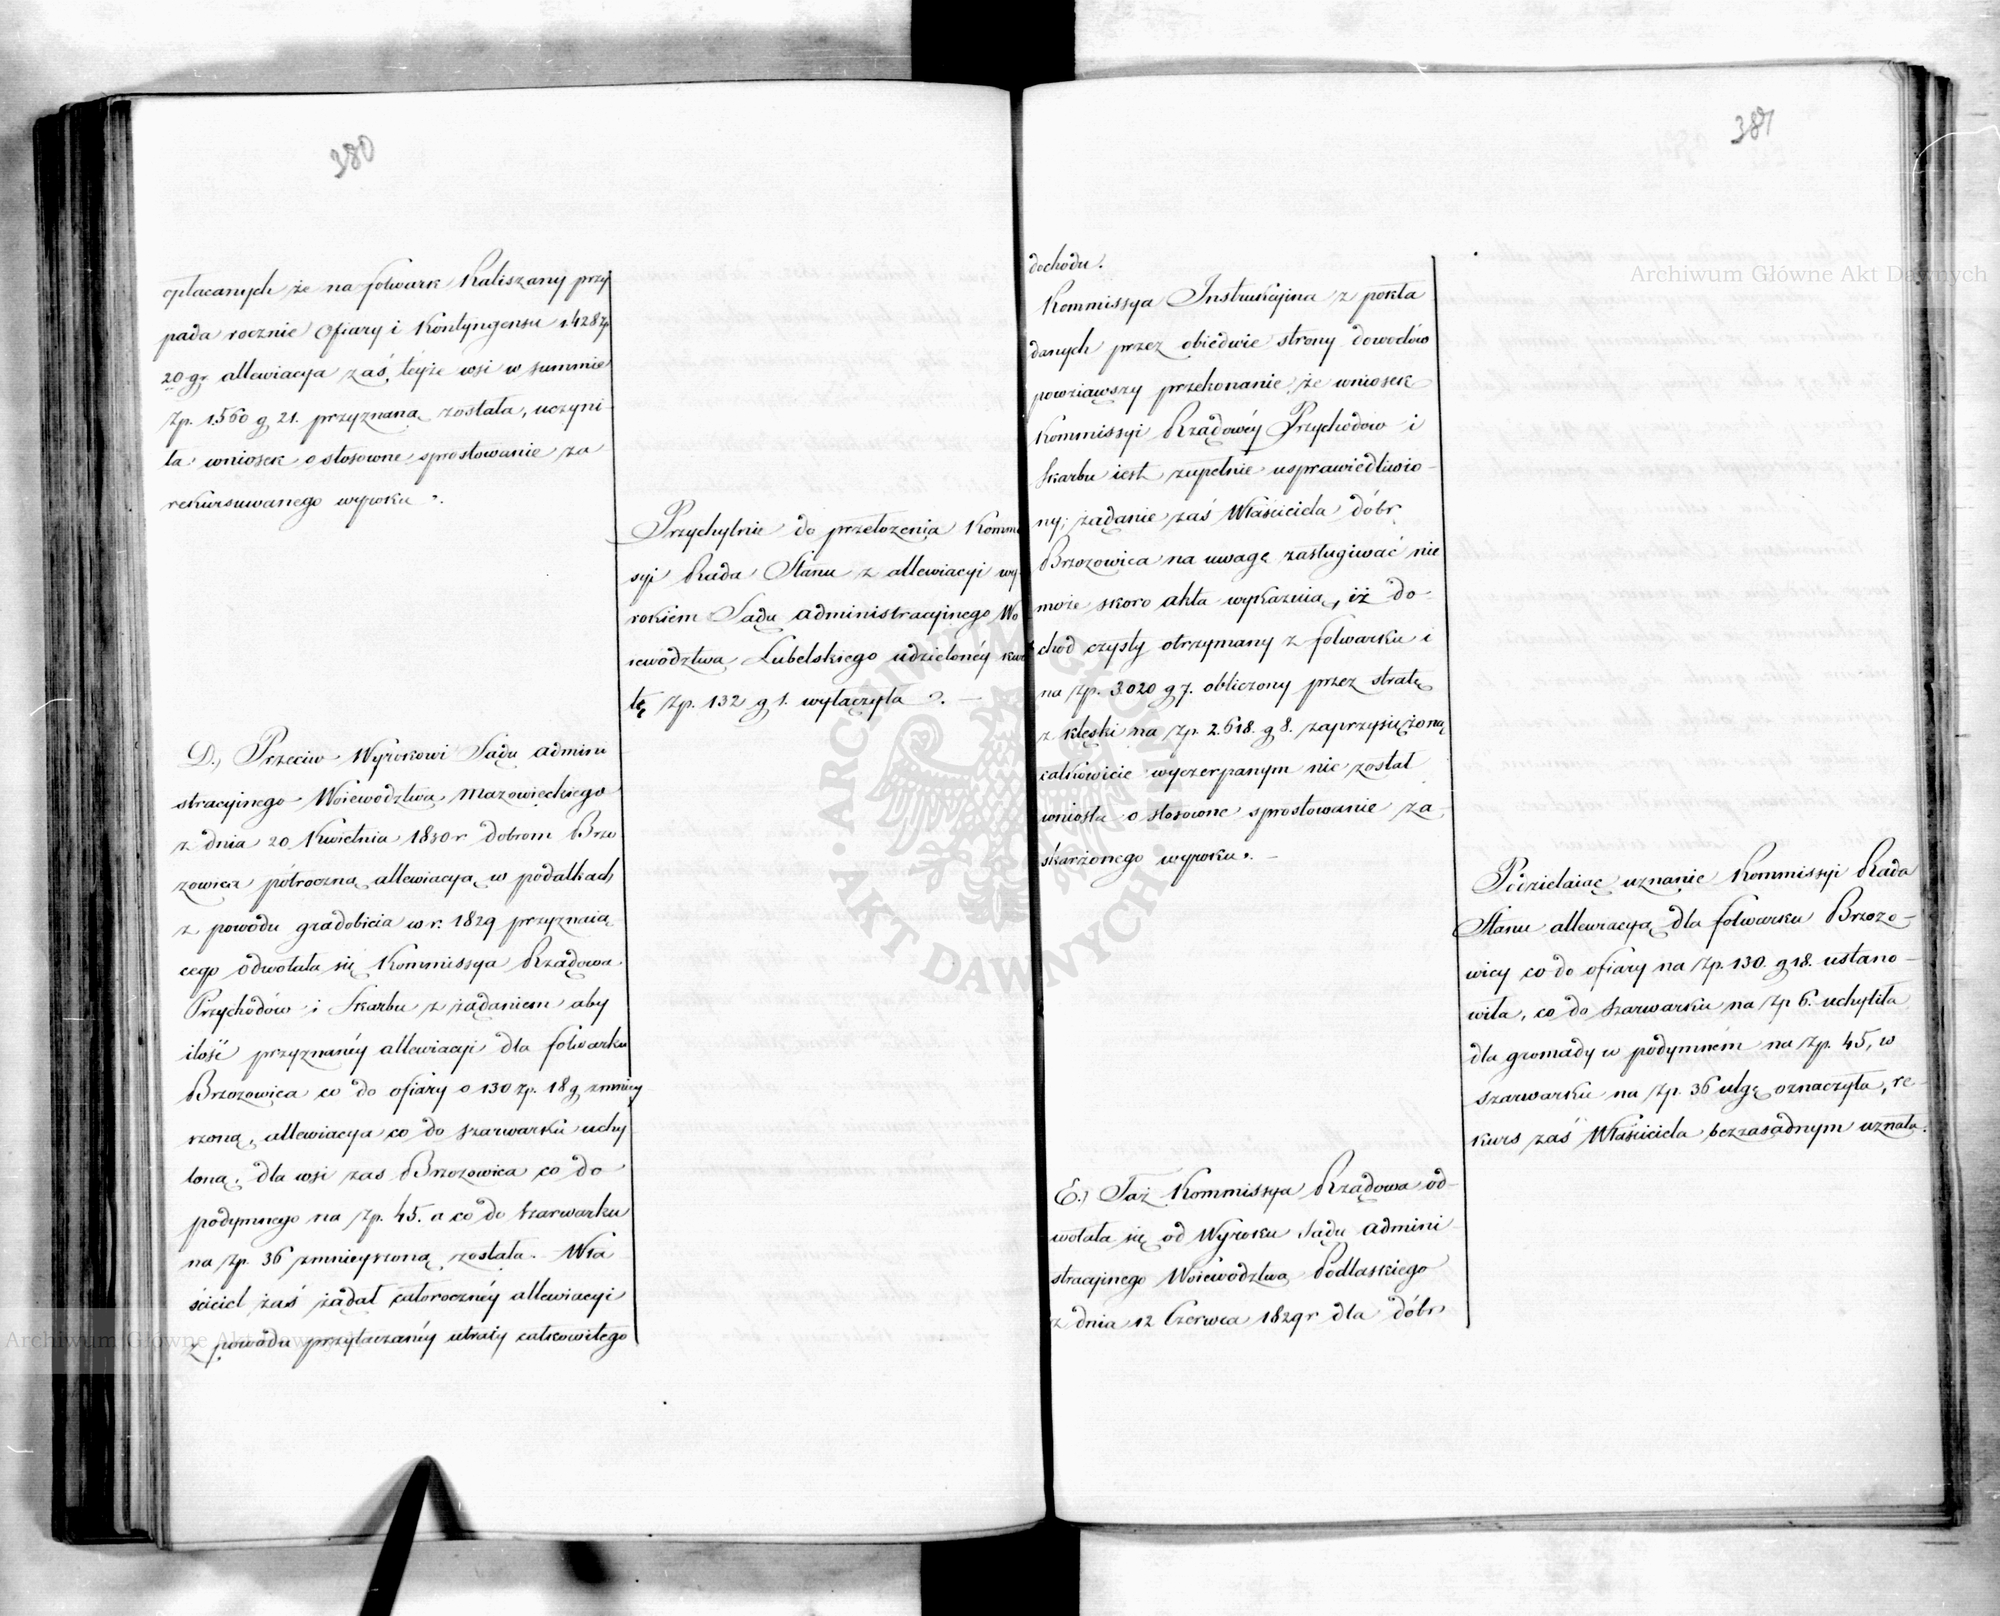 380
opłacanych że na folwark Kaliszany przy
pada rocznie Ofiary i Kontyngensu 1428 Zp.
20 gr allewiacya zaś teyże wsi w summie
Zp. 1560 g 21. przyznaną została, uczyni
ła wniosek o stosowne sprostowanie za
rekursuwanego wyroku.
Przychylnie do przełożenia Kommi
syi Rada Stanu z allewiacyi wy-
rokiem Sądu administracyinego Wo
iewództwa Lubelskiego udzieloney kwo
tę Zp. 132 g 1. wyłączyła. —
D., Przeciw Wyrokowi Sądu admini
stracyinego Woiewodztwa Mazowieckiego
z dnia 20 Kwietnia 1830 r dobrom Brzo
zowica półroczną allewiacyą w podatkach
z powodu gradobicia w r. 1829 przyznaią
cego odwołała się Kommissya Rządowa
Przychodów i Skarbu z żądaniem aby
ilość przyznanéy allewiacyi dla folwarku
Brzozowica co do ofiary o 130 zp. 18 g zmniey
szoną, allewiacya co do szarwarku uchy
loną, dla wsi zas Brzozowica co do
podymnego na Zp. 45. a co do szarwarku
na Zp. 36 zmnieyszoną została. Wła
ściciel zaś żądał całorocznéy allewiacyi
z powodu przytaczanéy utraty całkowitego
381
dochodu.
Kommissya Instrukcyina z pokła
danych przez obiedwie strony dowodów
powziąwszy przekonanie, że wniosek
Kommissyi Rządowéy Przychodów i
Skarbu iest zupełnie usprawiedliwio-
ny; żądanie zaś Właściciela dóbr
Brzozowica na uwagę zasługiwać nie
może skoro akta wykazuią, iż do-
chod czysty otrzymany z folwarku i
na Zp. 3.020 g 7. obliczony przez stratę
z klęski na Zp. 2.618. g 8. zaprzysiężoną
całkowicie wyczerpanym nie został
wniosła o stosowne sprostowanie za
skarżonego wyroku. —
Podzielaiąc uznanie Kommissyi Rada
Stanu allewiacyą dla folwarku Brzozo-
wicy co do ofiary na Zp. 130. g 18. ustano-
wiła, co do szarwarku na Zp 6. uchyliła
dla gromady w podymném na Zp. 45, w
szarwarku na Zp. 36 ulgę oznaczyła, re-
kurs zaś Właściciela bezzasadnym uznała.
E.) Taż Kommissya Rządowa od-
wołała się od Wyroku Sądu admini
stracyinego Woiewództwa Podlaskiego
z dnia 12 Czerwca 1829 r dla dóbr
Archiwum Główne Akt Dawnych
Archiwum Główne Akt Dawnych
ARCHIWUM GŁÓWNE
AKT DAWNYCH